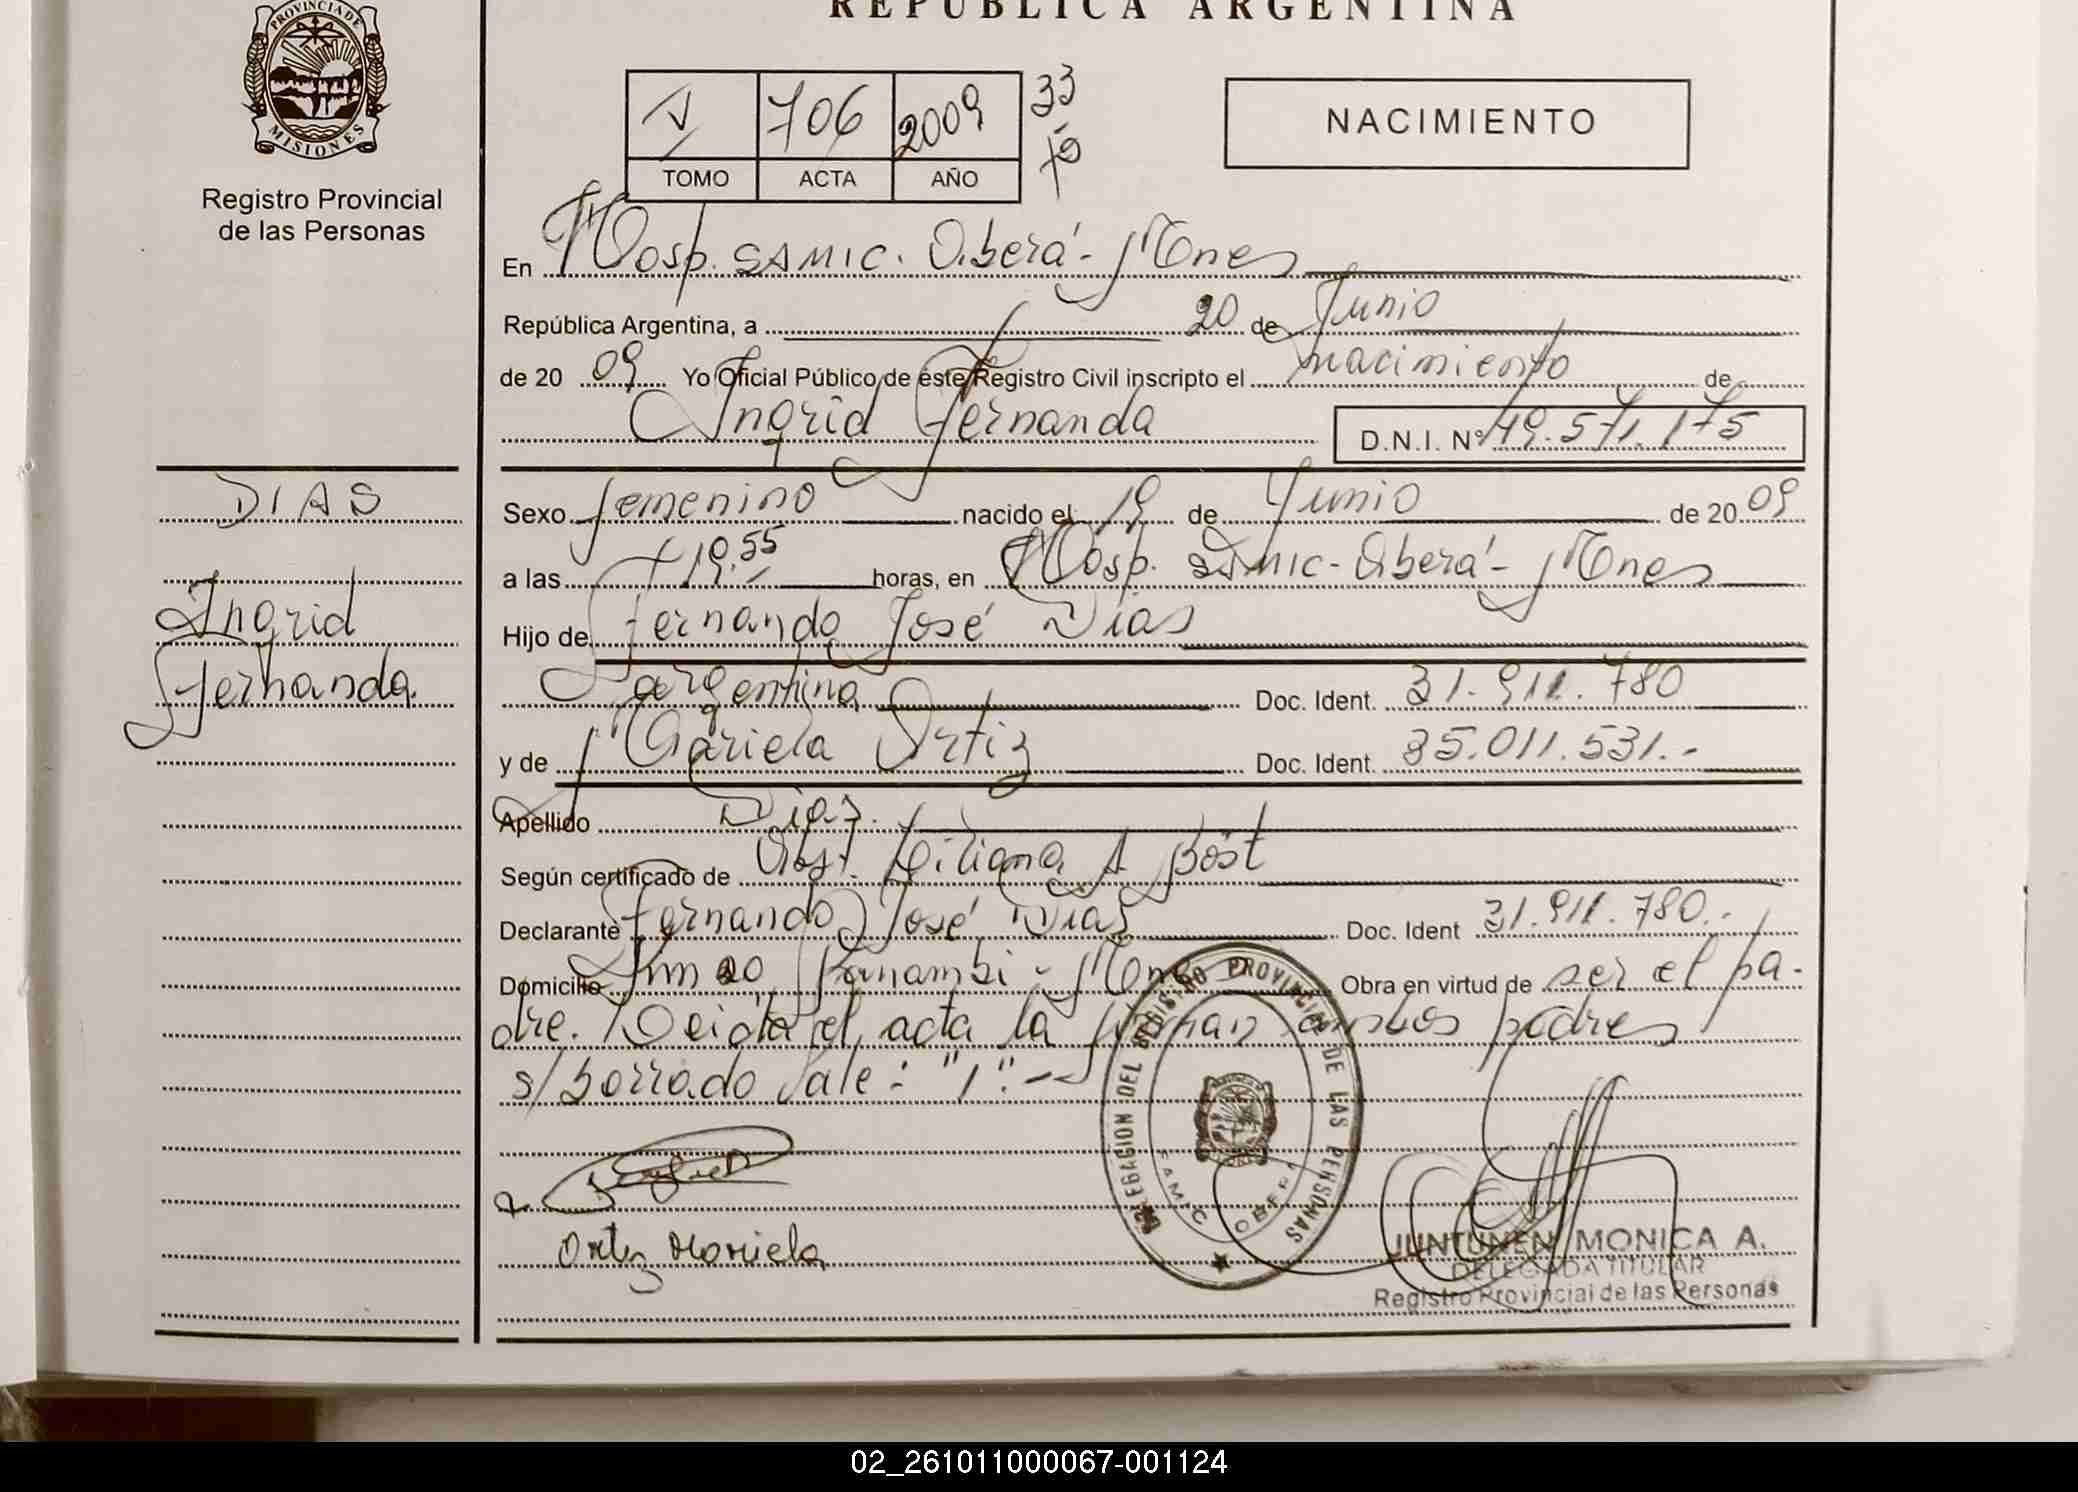 REPÚBLICA ARGENTINA
PROVINCIA DE
MISIONES
Registro Provincial
de las Personas
V 706 2009 33
TOMO ACTA AÑO
NACIMIENTO
En Hosp. SAMIC. Oberá - Mnes
República Argentina, a 20 de Junio
de 2009 Yo Oficial Público de este Registro Civil inscripto el nacimiento de
Ingrid Fernanda D.N.I. Nº 49.571.175
DIAS
Ingrid
Fernanda.
Sexo femenino nacido el 19 de Junio de 2009
a las 19.55 horas, en Hosp. SAMIC - Oberá - Mnes
Hijo de Fernando José Dias
argentina Doc. Ident. 31.911.780
y de Mariela Ortiz Doc. Ident. 35.011.531.-
Apellido Dias.
Según certificado de Obst. Liliana A Bost
Declarante Fernando José Dias Doc. Ident 31.911.780.-
Domicilio Km 20 Panambi - Mnes Obra en virtud de ser el pa-
dre. Leida el acta la firman ambos padres
s/borrado Vale: "1".-
Ortiz Mariela
DELEGACION DEL REGISTRO PROVINCIAL DE LAS PERSONAS
SAMIC OBERA
JUNTUNEN MONICA A.
DELEGADA TITULAR
Registro Provincial de las Personas
02_261011000067-001124